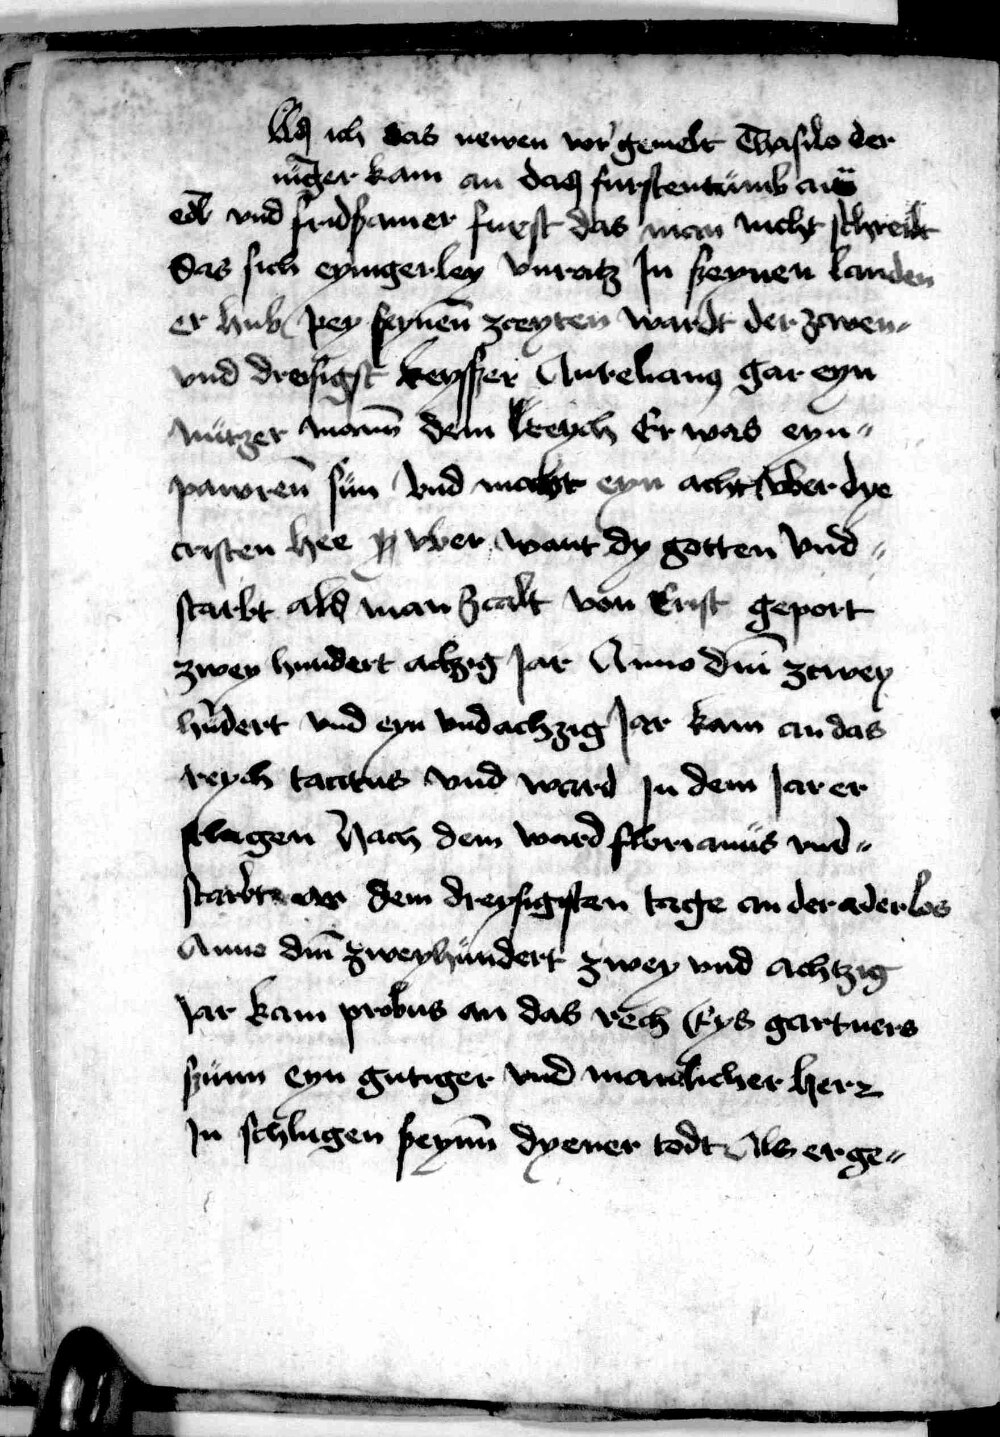 Als ich das newen vor gemelt Thasilo der
nüger kam an das furstentumb ain
edl vnd fridsamer furst das man nicht schreibt
Das sich eyingerley vnratz Jn seynen landen
er hub pey seynen zceyten wardt der zcwen-
vnd dreisigst keysser Aurelianus gar eyn
nutzer mann dem Reych Er was eyn-
pawren sün Vnd macht eyn acht vber dye
cristen hee vber want dy gotten Vnd-
starbt als man zcalt von Crist geport
zwey hundert achzig Jar Anno dni zcwey
hundert vnd eyn vndachzig Jar kam an das
reych tacitus vnd ward Jn dem Jar er
slagen Nach dem ward florianus vnd-
starbt an dem dreysigisten tage an der aderlos
Anno dni zweyhundert zwey vnd achtzig
Jar kam probus an das rech Eys gartners
sünn eyn gutiger vnd manlicher herr
Jn schlugen seynn dyener todt Als er ge-